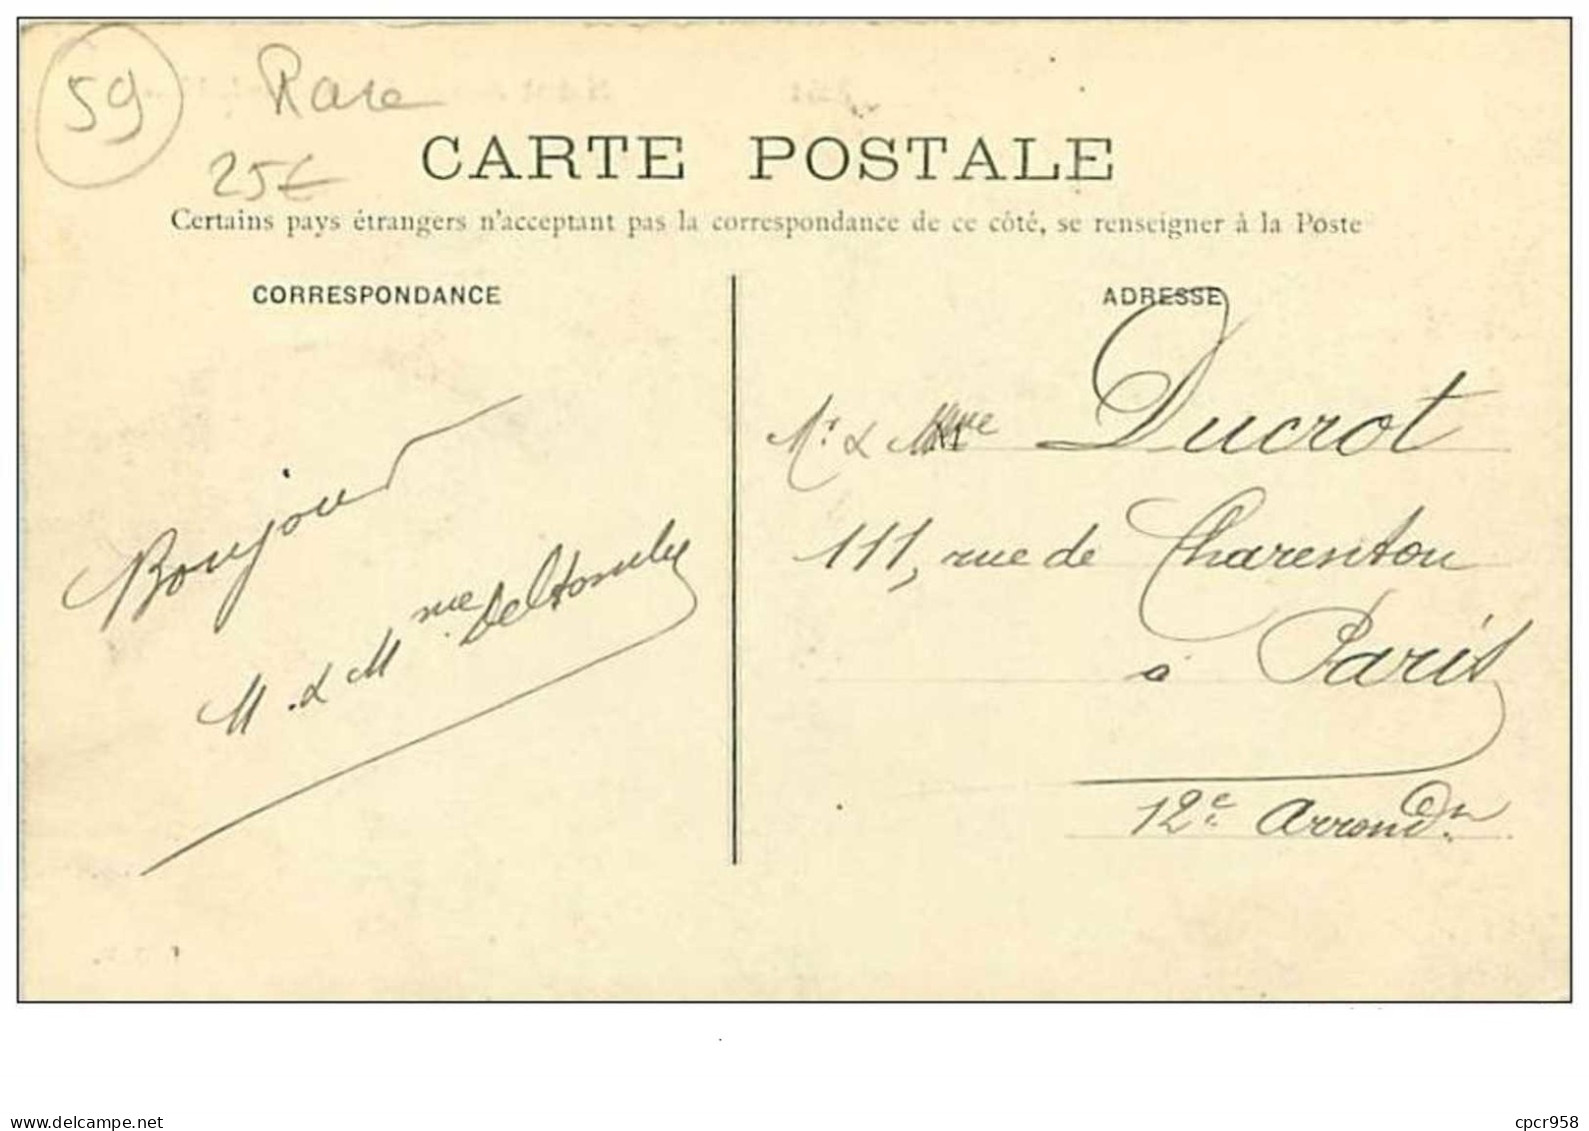 59
Rare
25€
CARTE POSTALE
Certains pays étrangers n'acceptant pas la correspondance de ce côté, se renseigner à la Poste
CORRESPONDANCE
Bonjour
M. & Mme
ADRESSE
Mr & Mme Ducrot
111, rue de Charenton
à Paris
12e Arrondt
www.delcampe.net
cpcr958